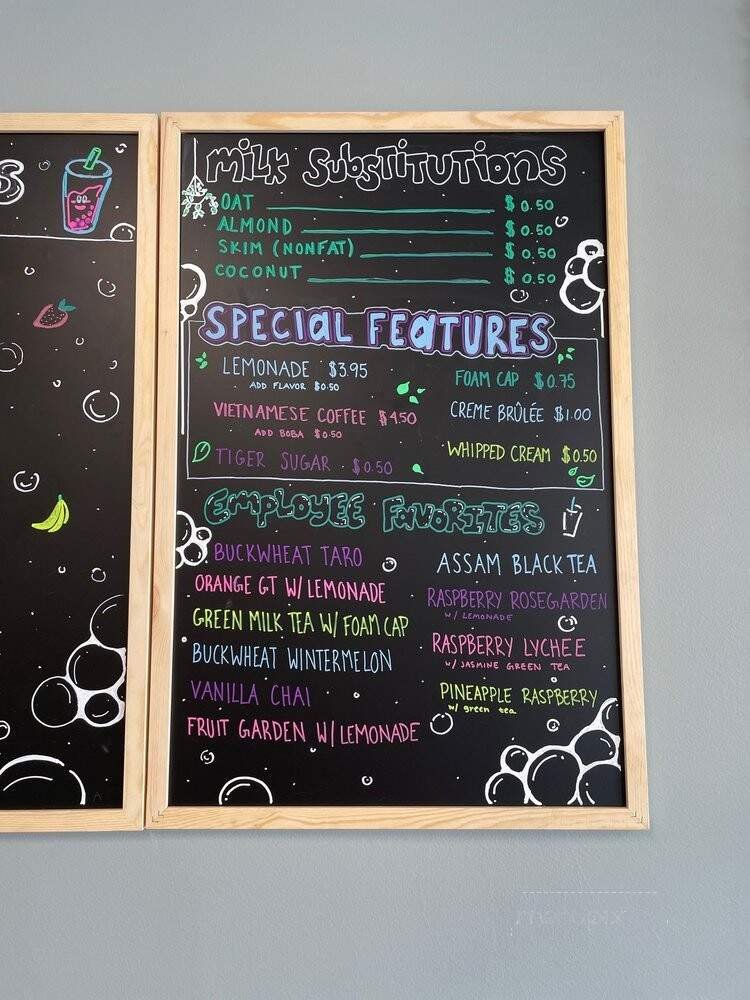 S
MILK SUBSTITUTIONS
OAT $0.50
ALMOND $0.50
SKIM (NONFAT) $0.50
COCONUT $0.50
SPECIAL FEATURES
LEMONADE $3.95
ADD FLAVOR $0.50
VIETNAMESE COFFEE $4.50
ADD BOBA $0.50
TIGER SUGAR $0.50
FOAM CAP $0.75
CREME BRÛLÉE $1.00
WHIPPED CREAM $0.50
EMPLOYEE FAVORITES
BUCKWHEAT TARO
ORANGE GT W/ LEMONADE
GREEN MILK TEA W/ FOAM CAP
BUCKWHEAT WINTERMELON
VANILLA CHAI
FRUIT GARDEN W/ LEMONADE
ASSAM BLACK TEA
RASPBERRY ROSEGARDEN
W/ LEMONADE
RASPBERRY LYCHEE
W/ JASMINE GREEN TEA
PINEAPPLE RASPBERRY
w/ green tea
menupix